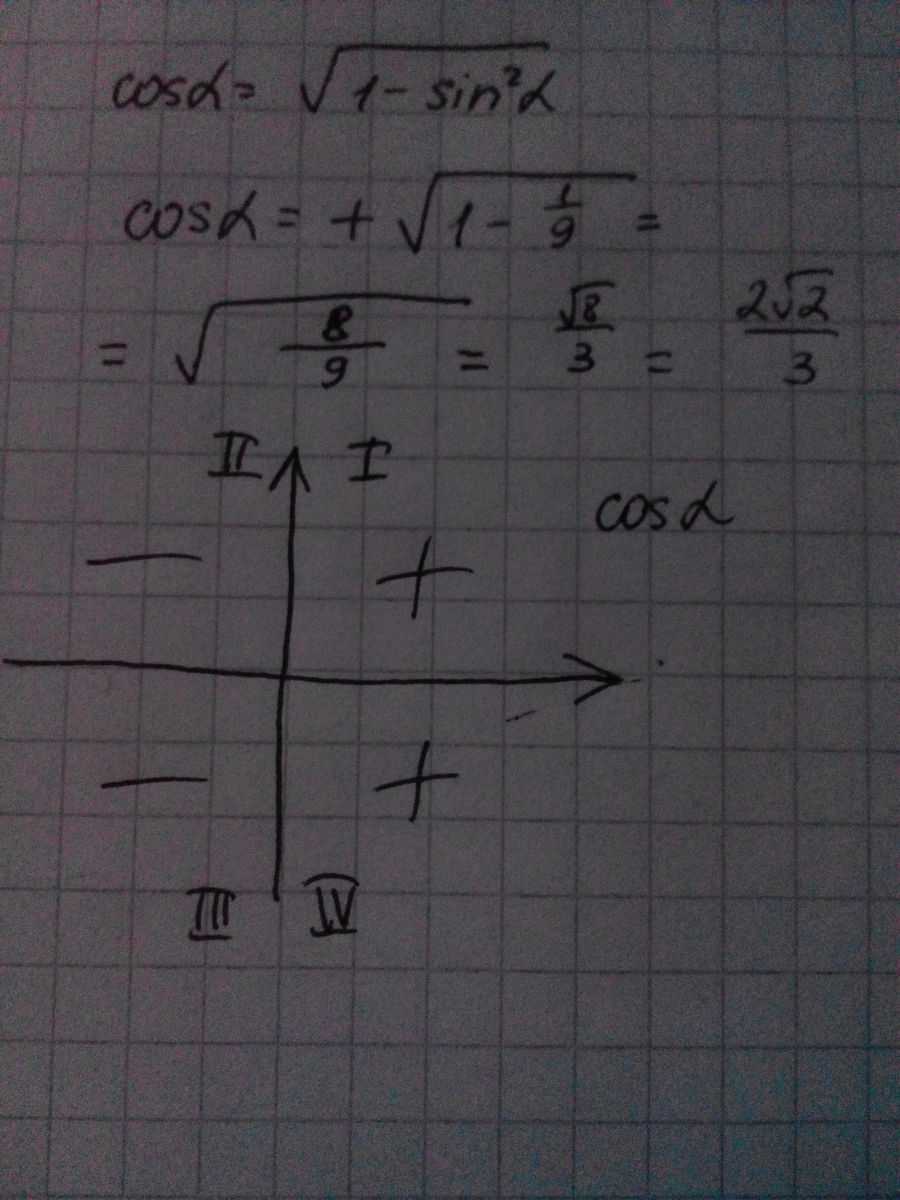 cosα = √(1 - sin²α)
cosα = + √(1 - 1/9) =
= √(8/9) = √8/3 = 2√2/3
II I
cosα
− +
− +
III IV